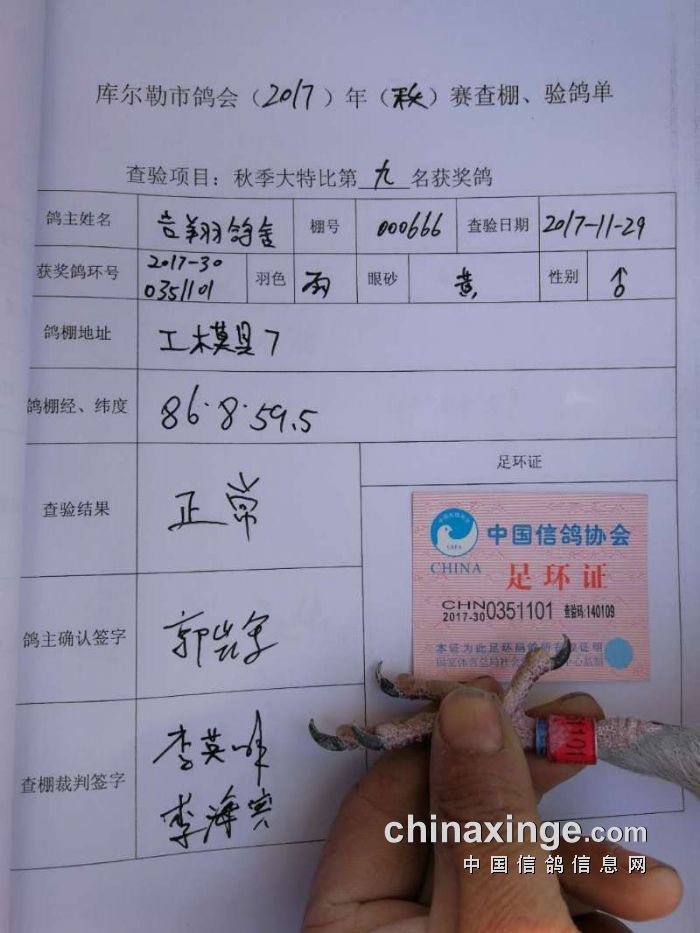 库尔勒市鸽会（2017）年（秋）赛查棚、验鸽单
查验项目：秋季大特比第 九 名获奖鸽
鸽主姓名 吉翔鸽舍 棚号 000666 查验日期 2017-11-29
获奖鸽环号 2017-30 0351101 羽色 雨 眼砂 黄 性别 ♂
鸽棚地址 工木模具7
鸽棚经、纬度 86.8.59.5
查验结果 正常
足环证
中国信鸽协会
CHINA 足环证
CHN 2017-30 0351101 查验码:140109
本证为此足环码的所有权证明
国家体育总局社会
鸽主确认签字 郭
查棚裁判签字 李英
李海
1101
chinaxinge.com
中国信鸽信息网